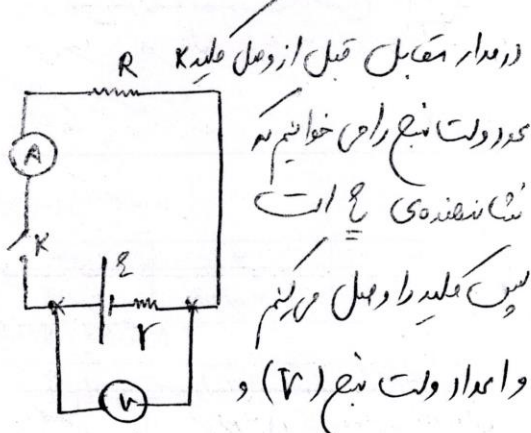 در مدار مقابل قبل از وصل کلید K
عدد ولت سنج را می خوانیم که
نشان‌دهنده‌ی ε است
سپس کلید را وصل می کنیم
و اعداد ولت سنج (V) و
R
A
K
ε
r
V